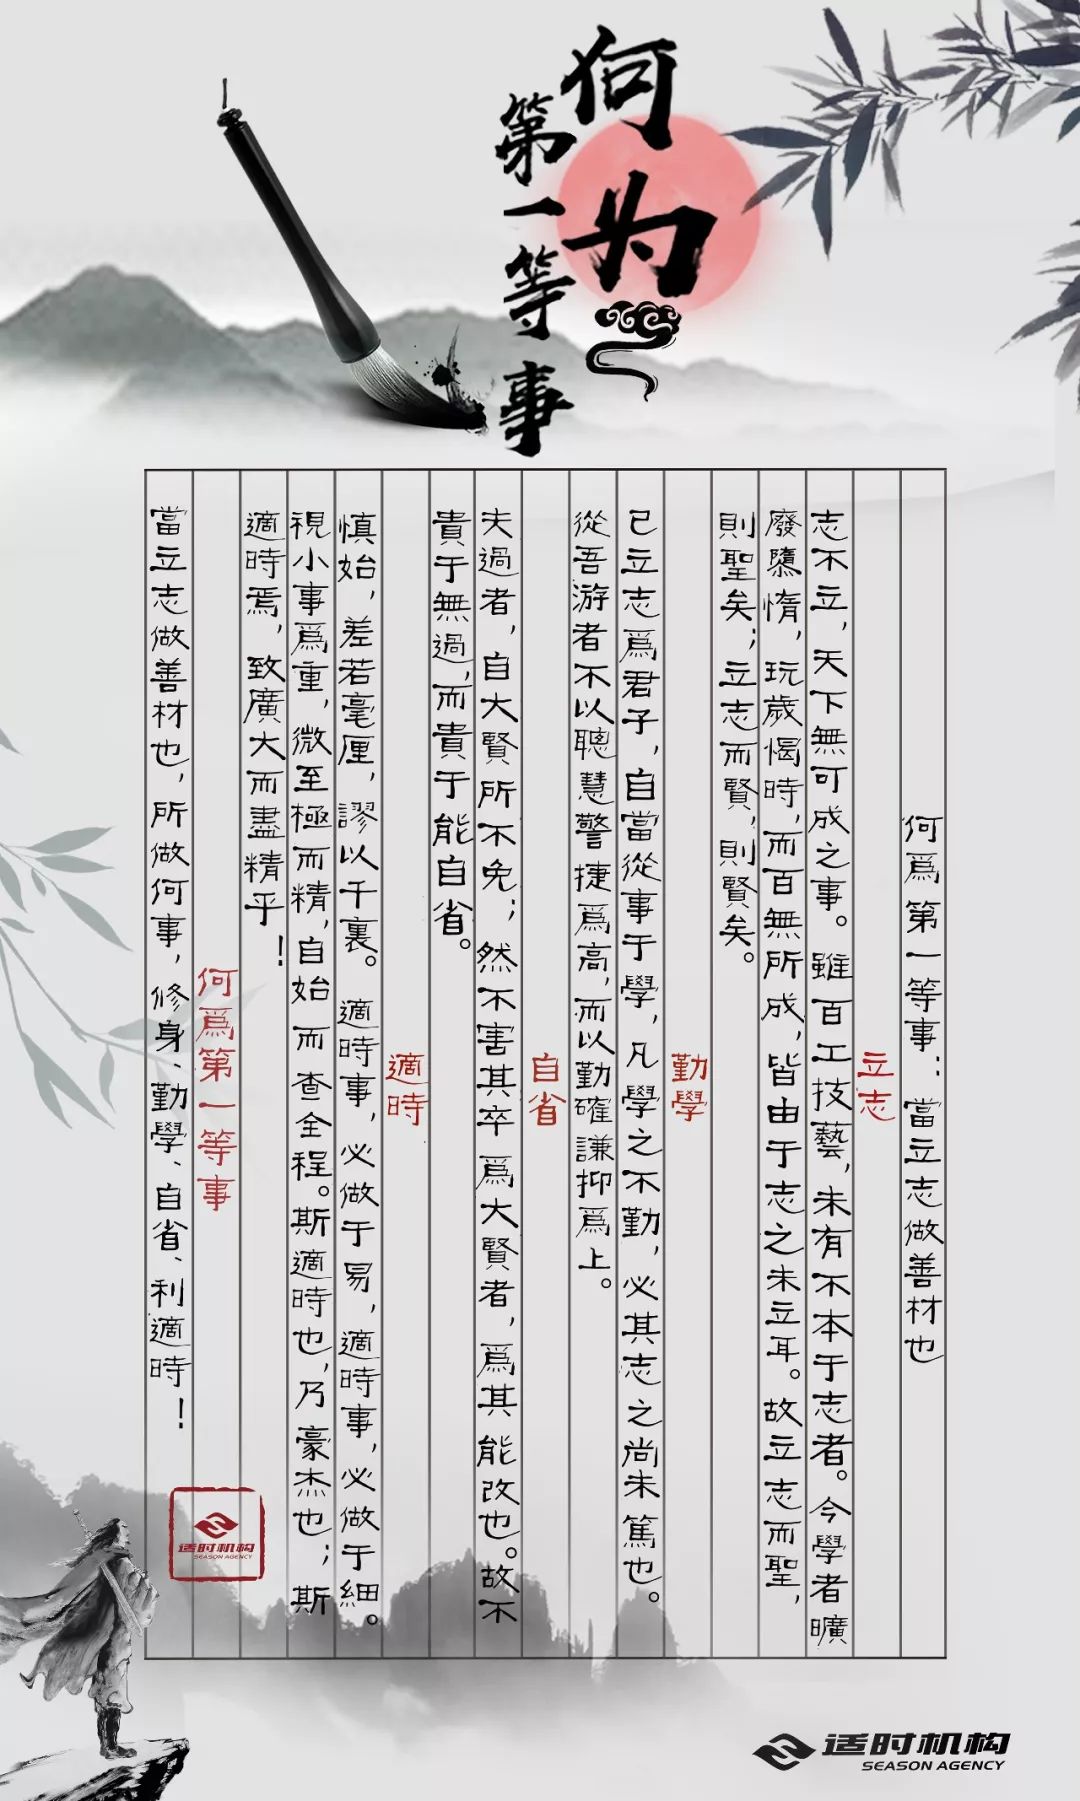 何为
第一等事
何爲第一等事：當立志做善材也
立志
志不立，天下無可成之事。雖百工技藝，未有不本于志者。今學者曠
廢隳惰，玩歲愒時，而百無所成，皆由于志之未立耳。故立志而聖，
則聖矣；立志而賢，則賢矣。
勤學
已立志爲君子，自當從事于學，凡學之不勤，必其志之尚未篤也。
從吾游者不以聰慧警捷爲高，而以勤確謙抑爲上。
自省
夫過者，自大賢所不免；然不害其卒爲大賢者，爲其能改也。故不
貴于無過，而貴于能自省。
適時
慎始，差若毫厘，謬以千裏。適時事，必做于易，適時事，必做于細。
視小事爲重，微至極而精，自始而查全程。斯適時也，乃豪杰也；斯
適時焉，致廣大而盡精乎！
何爲第一等事
當立志做善材也，所做何事，修身、勤學、自省、利適時！
适时机构
SEASON AGENCY
适时机构
SEASON AGENCY